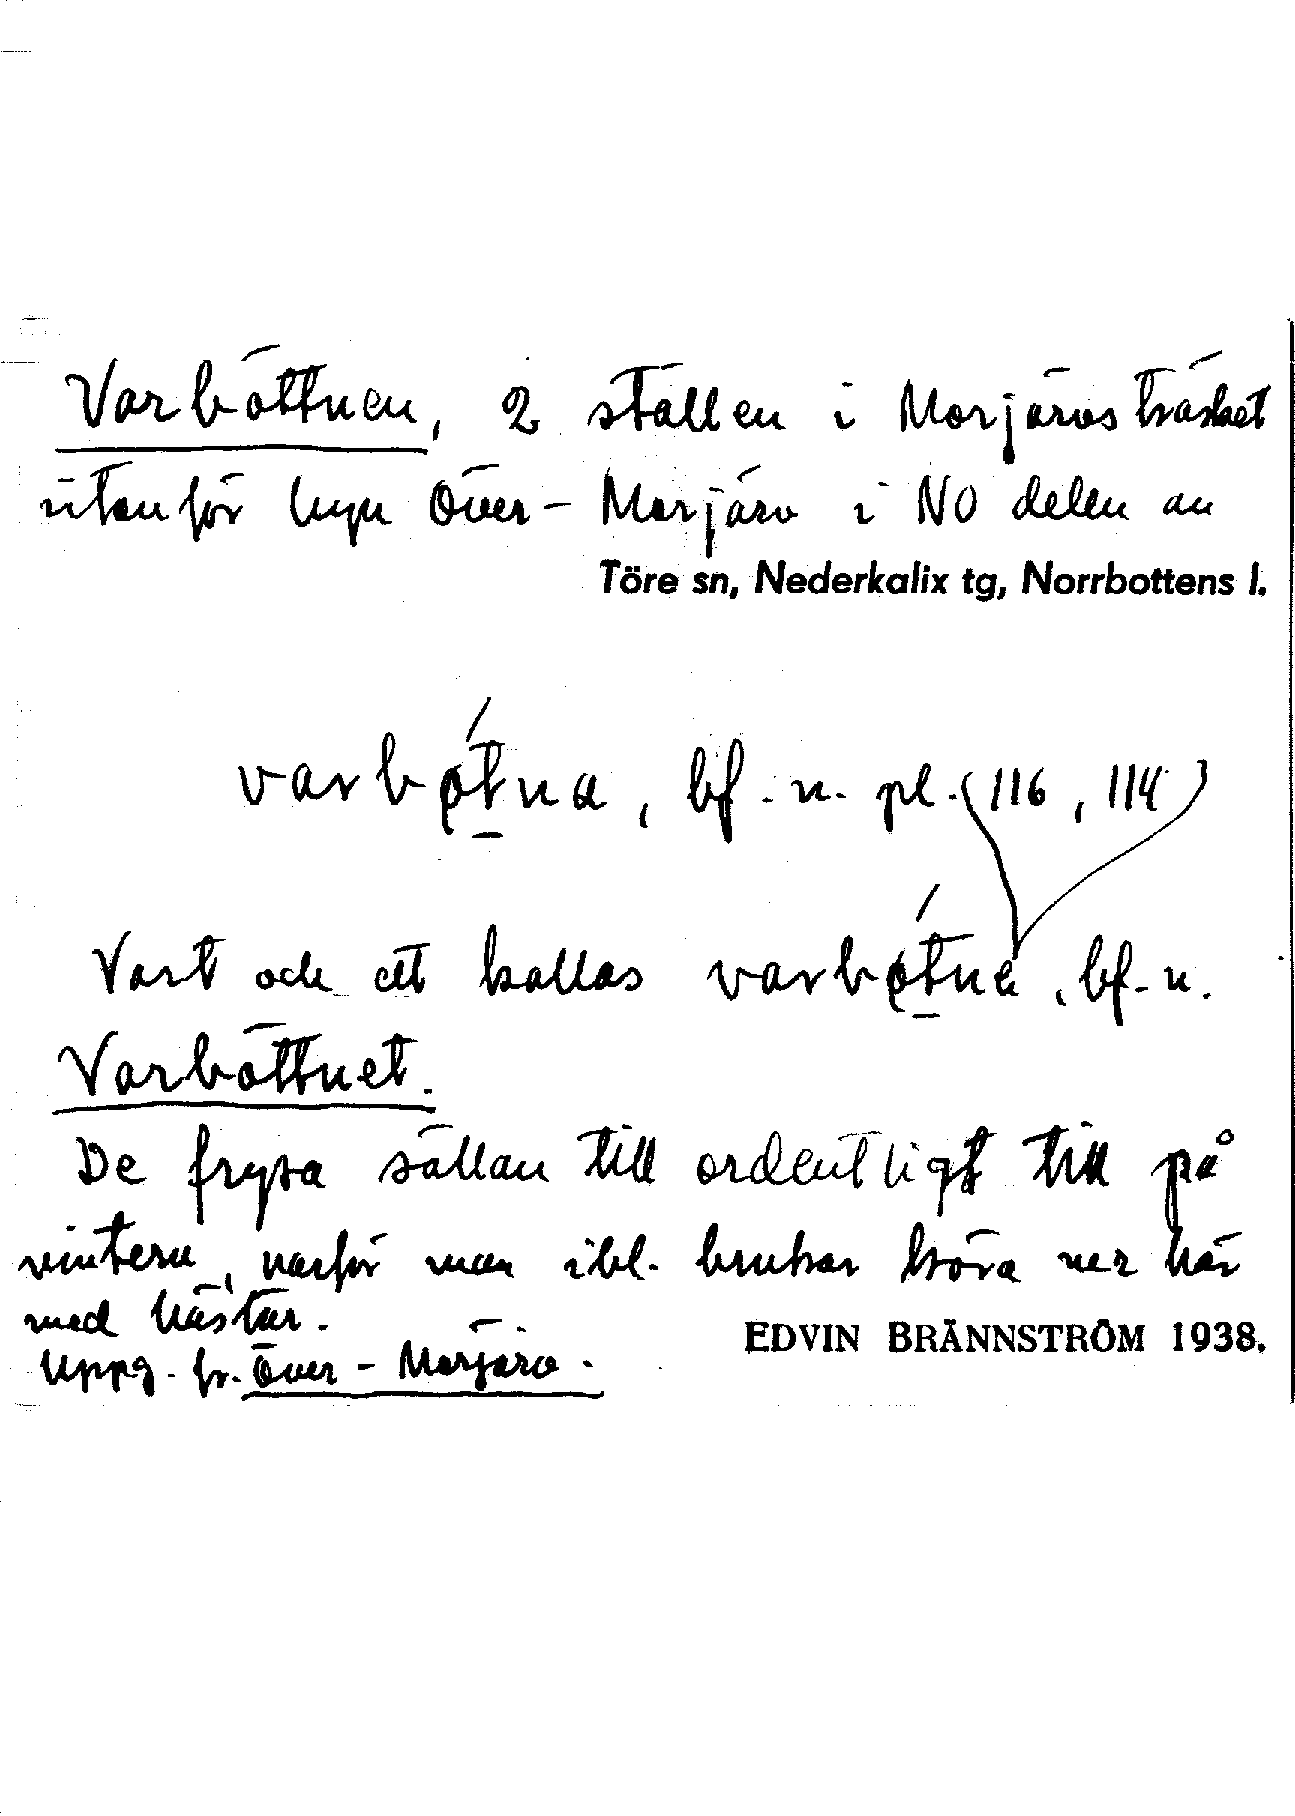 Varböttnen, 2 ställen i Morjärvsträsket
utanför byn Över-Morjärv i NO delen av
Töre sn, Nederkalix tg, Norrbottens l.
varbǿtna, bf. n. pl. (116, 114)
Vart och ett kallas varbǿtne, bf. n.
Varböttnet.
De frysa sällan till ordentligt till på
vintern, varför man ibl. brukar köra ner här
med hästar.
Uppg. fr. Över-Morjärv.
EDVIN BRÄNNSTRÖM 1938.